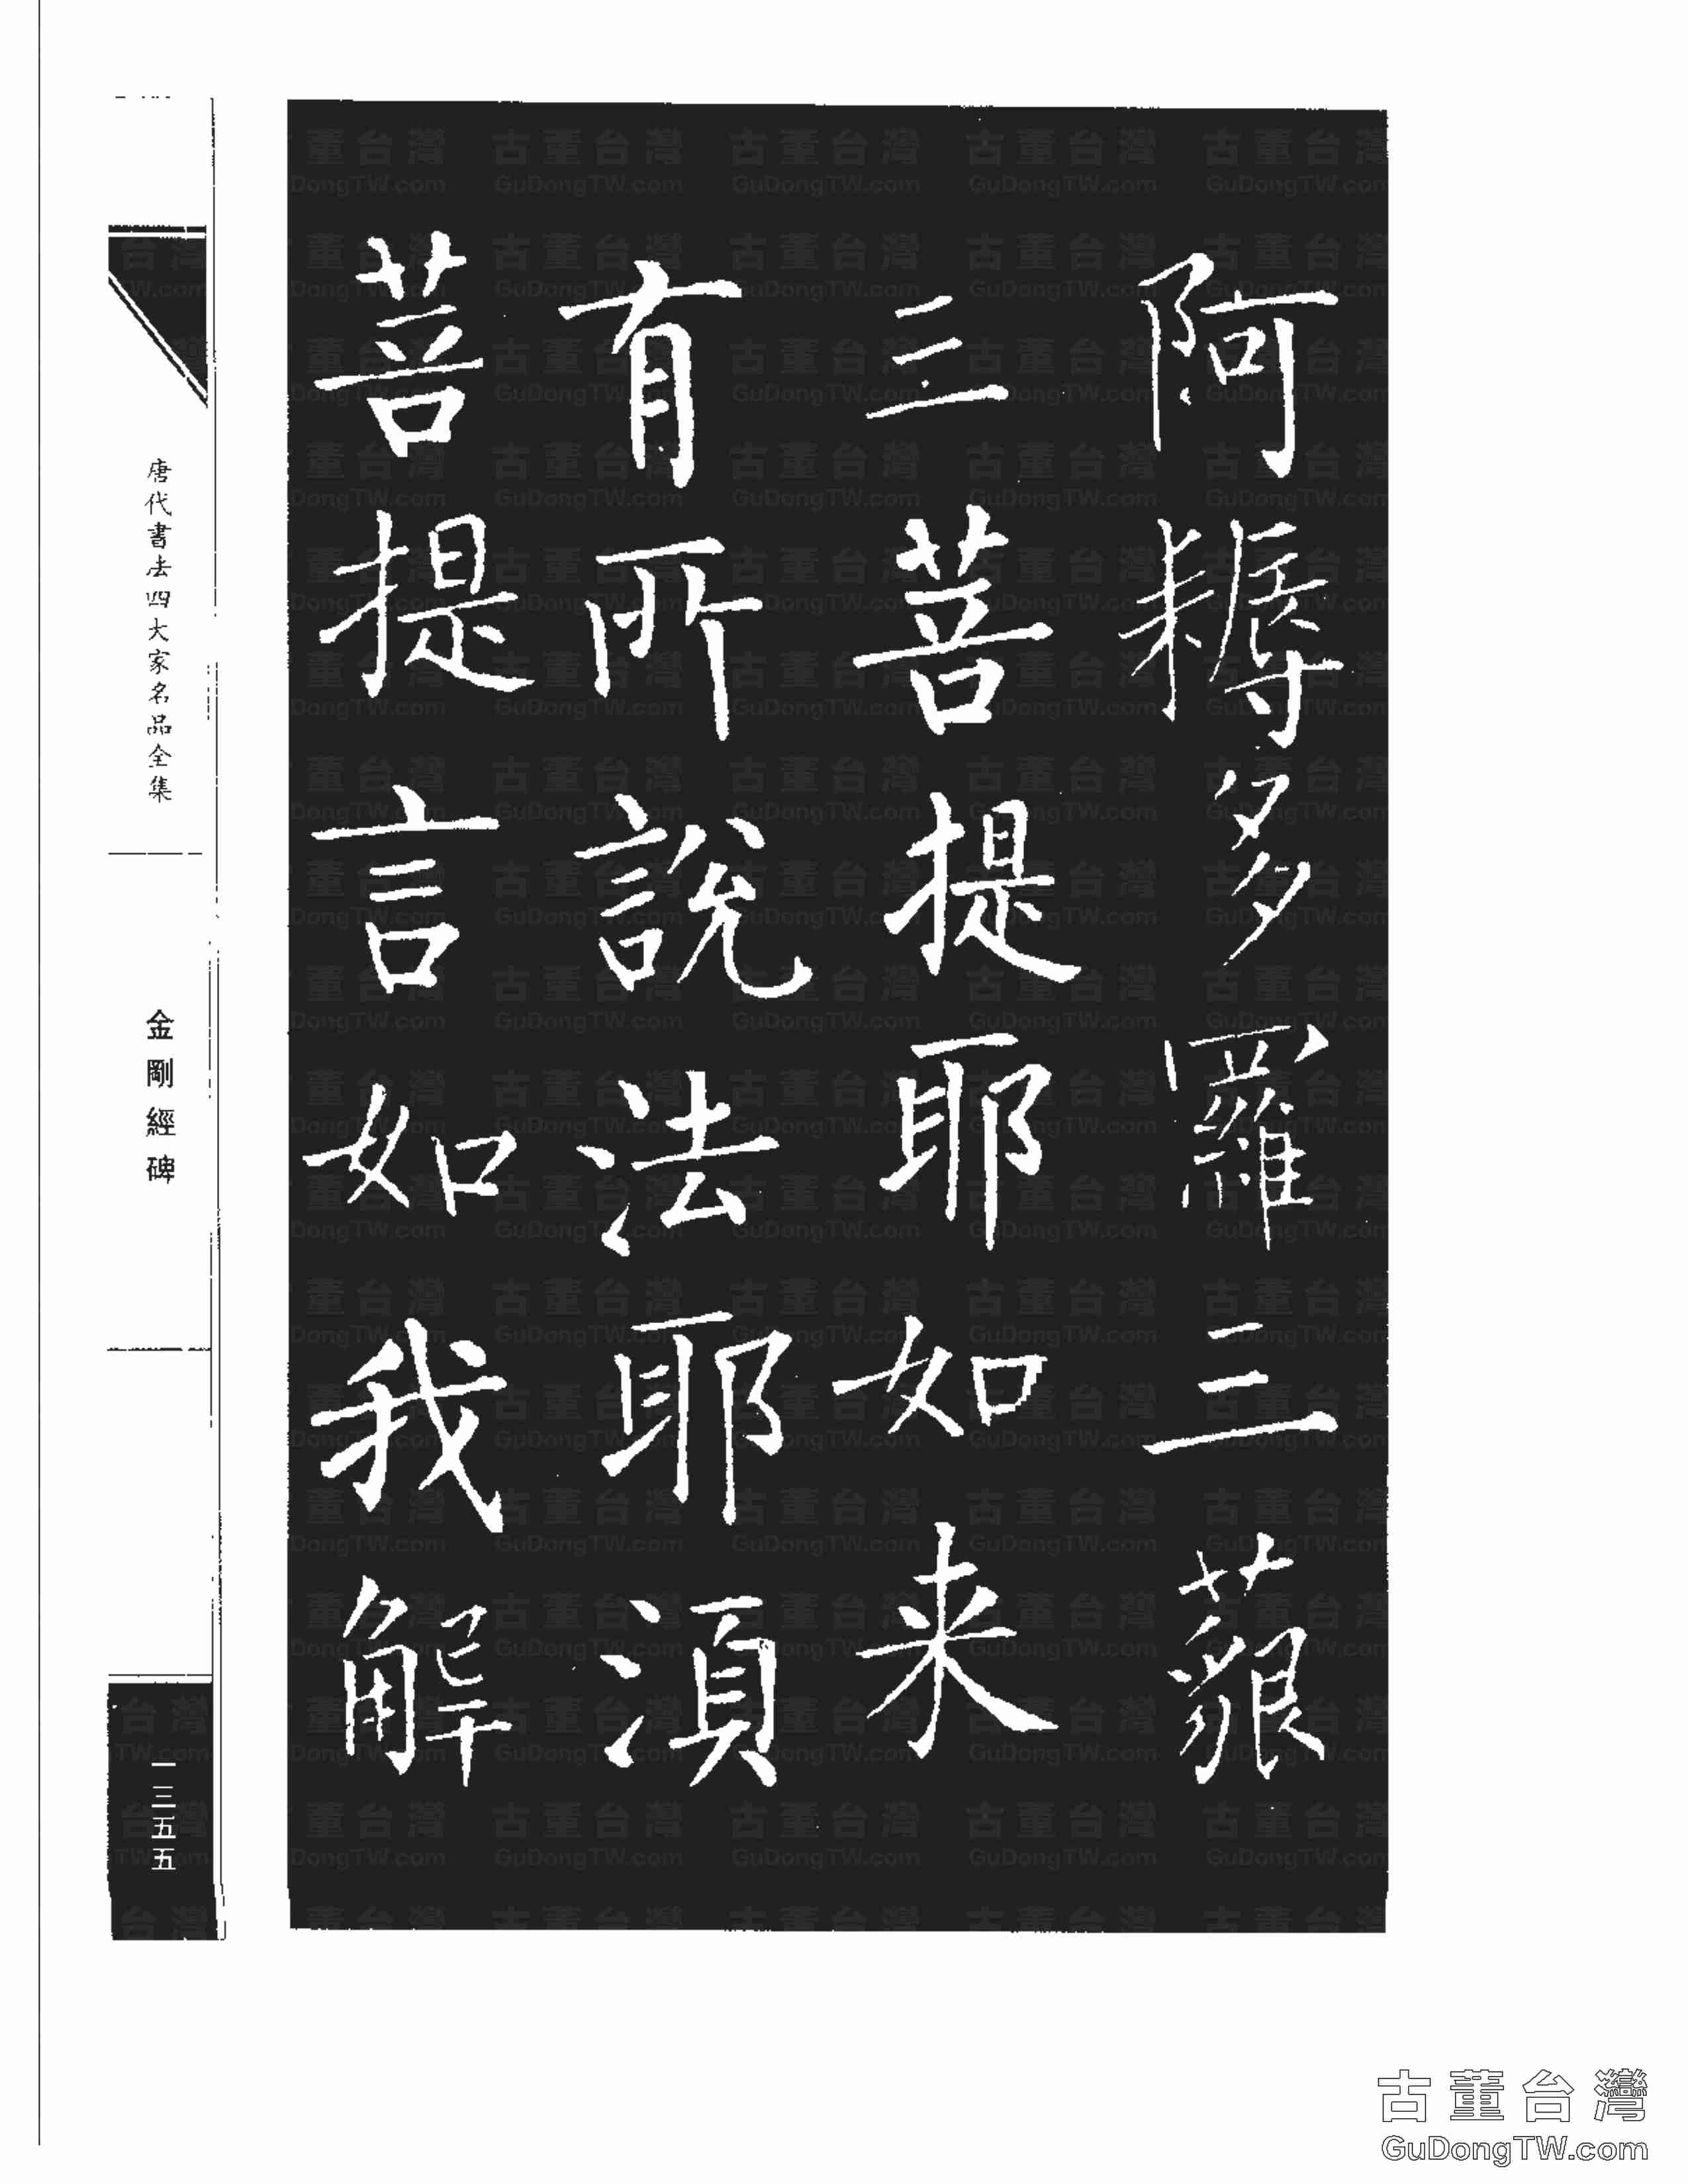 阿耨多羅三藐
三菩提耶如来
有所說法耶湏
菩提言如我解
唐代書法四大家名品全集
金剛經碑
一三五五
古董台灣
GuDongTW.com